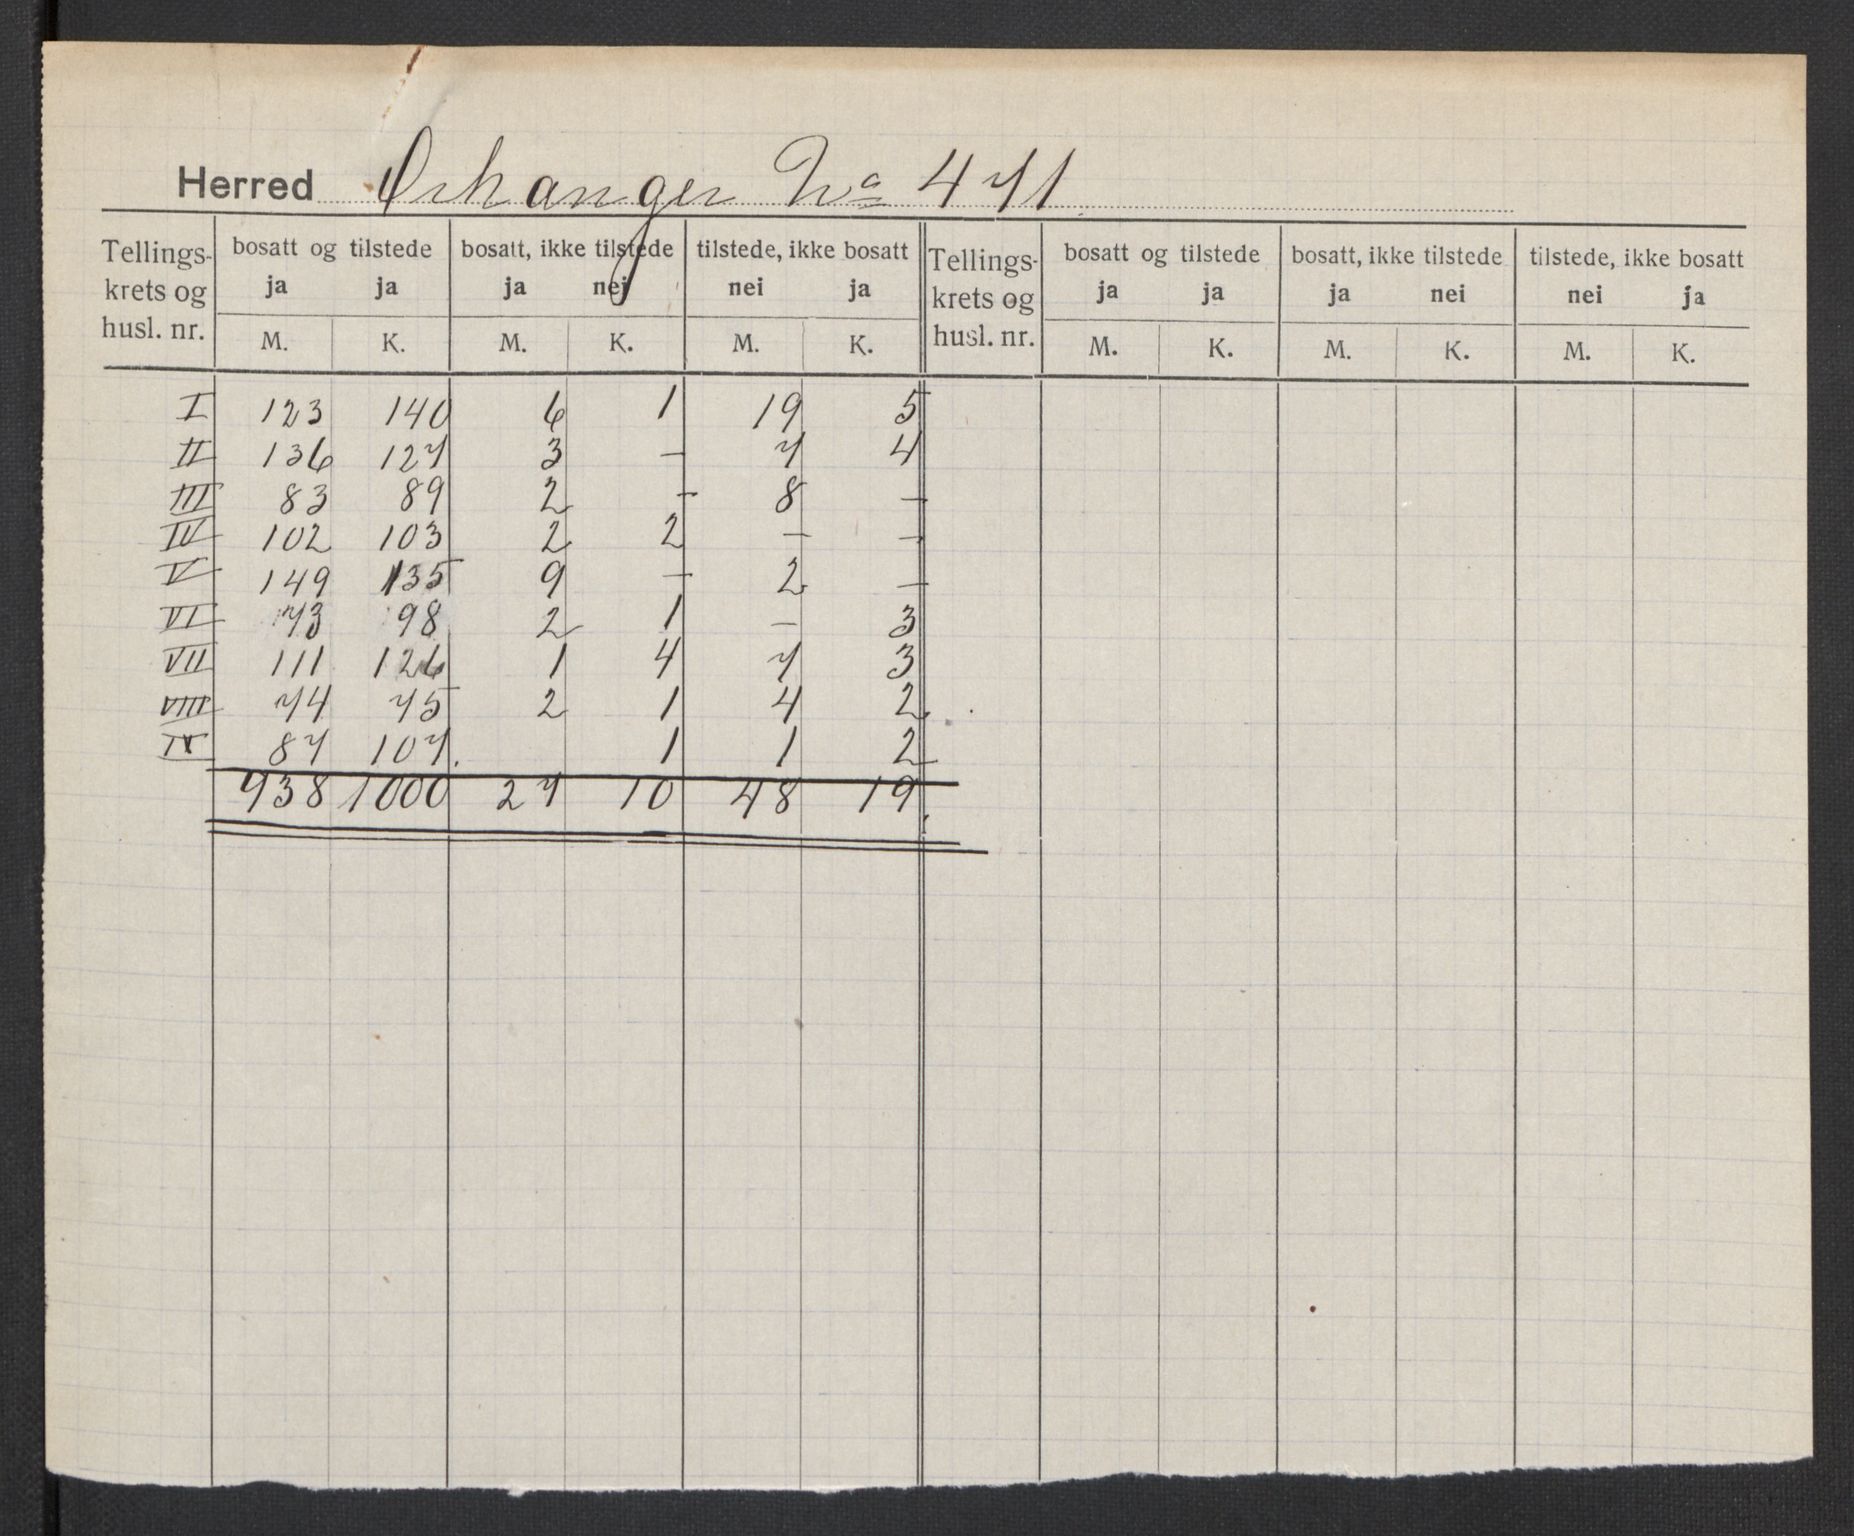 Herred Orkanger No 471
Tellings- krets og husl. nr. | bosatt og tilstede | bosatt, ikke tilstede | tilstede, ikke bosatt | Tellings- krets og husl. nr. | bosatt og tilstede | bosatt, ikke tilstede | tilstede, ikke bosatt
ja ja | ja nei | nei ja | ja ja | ja nei | nei ja
M. K. | M. K. | M. K. | M. K. | M. K. | M. K.
I 123 140 6 1 19 5
II 136 127 3 – 7 4
III 83 89 2 – 8 –
IV 102 103 2 2 – –
V 149 135 9 – 2 –
VI 73 98 2 1 – 3
VII 111 126 1 4 7 3
VIII 74 75 2 1 4 2
IX 87 107 1 1 2
938 1000 27 10 48 19